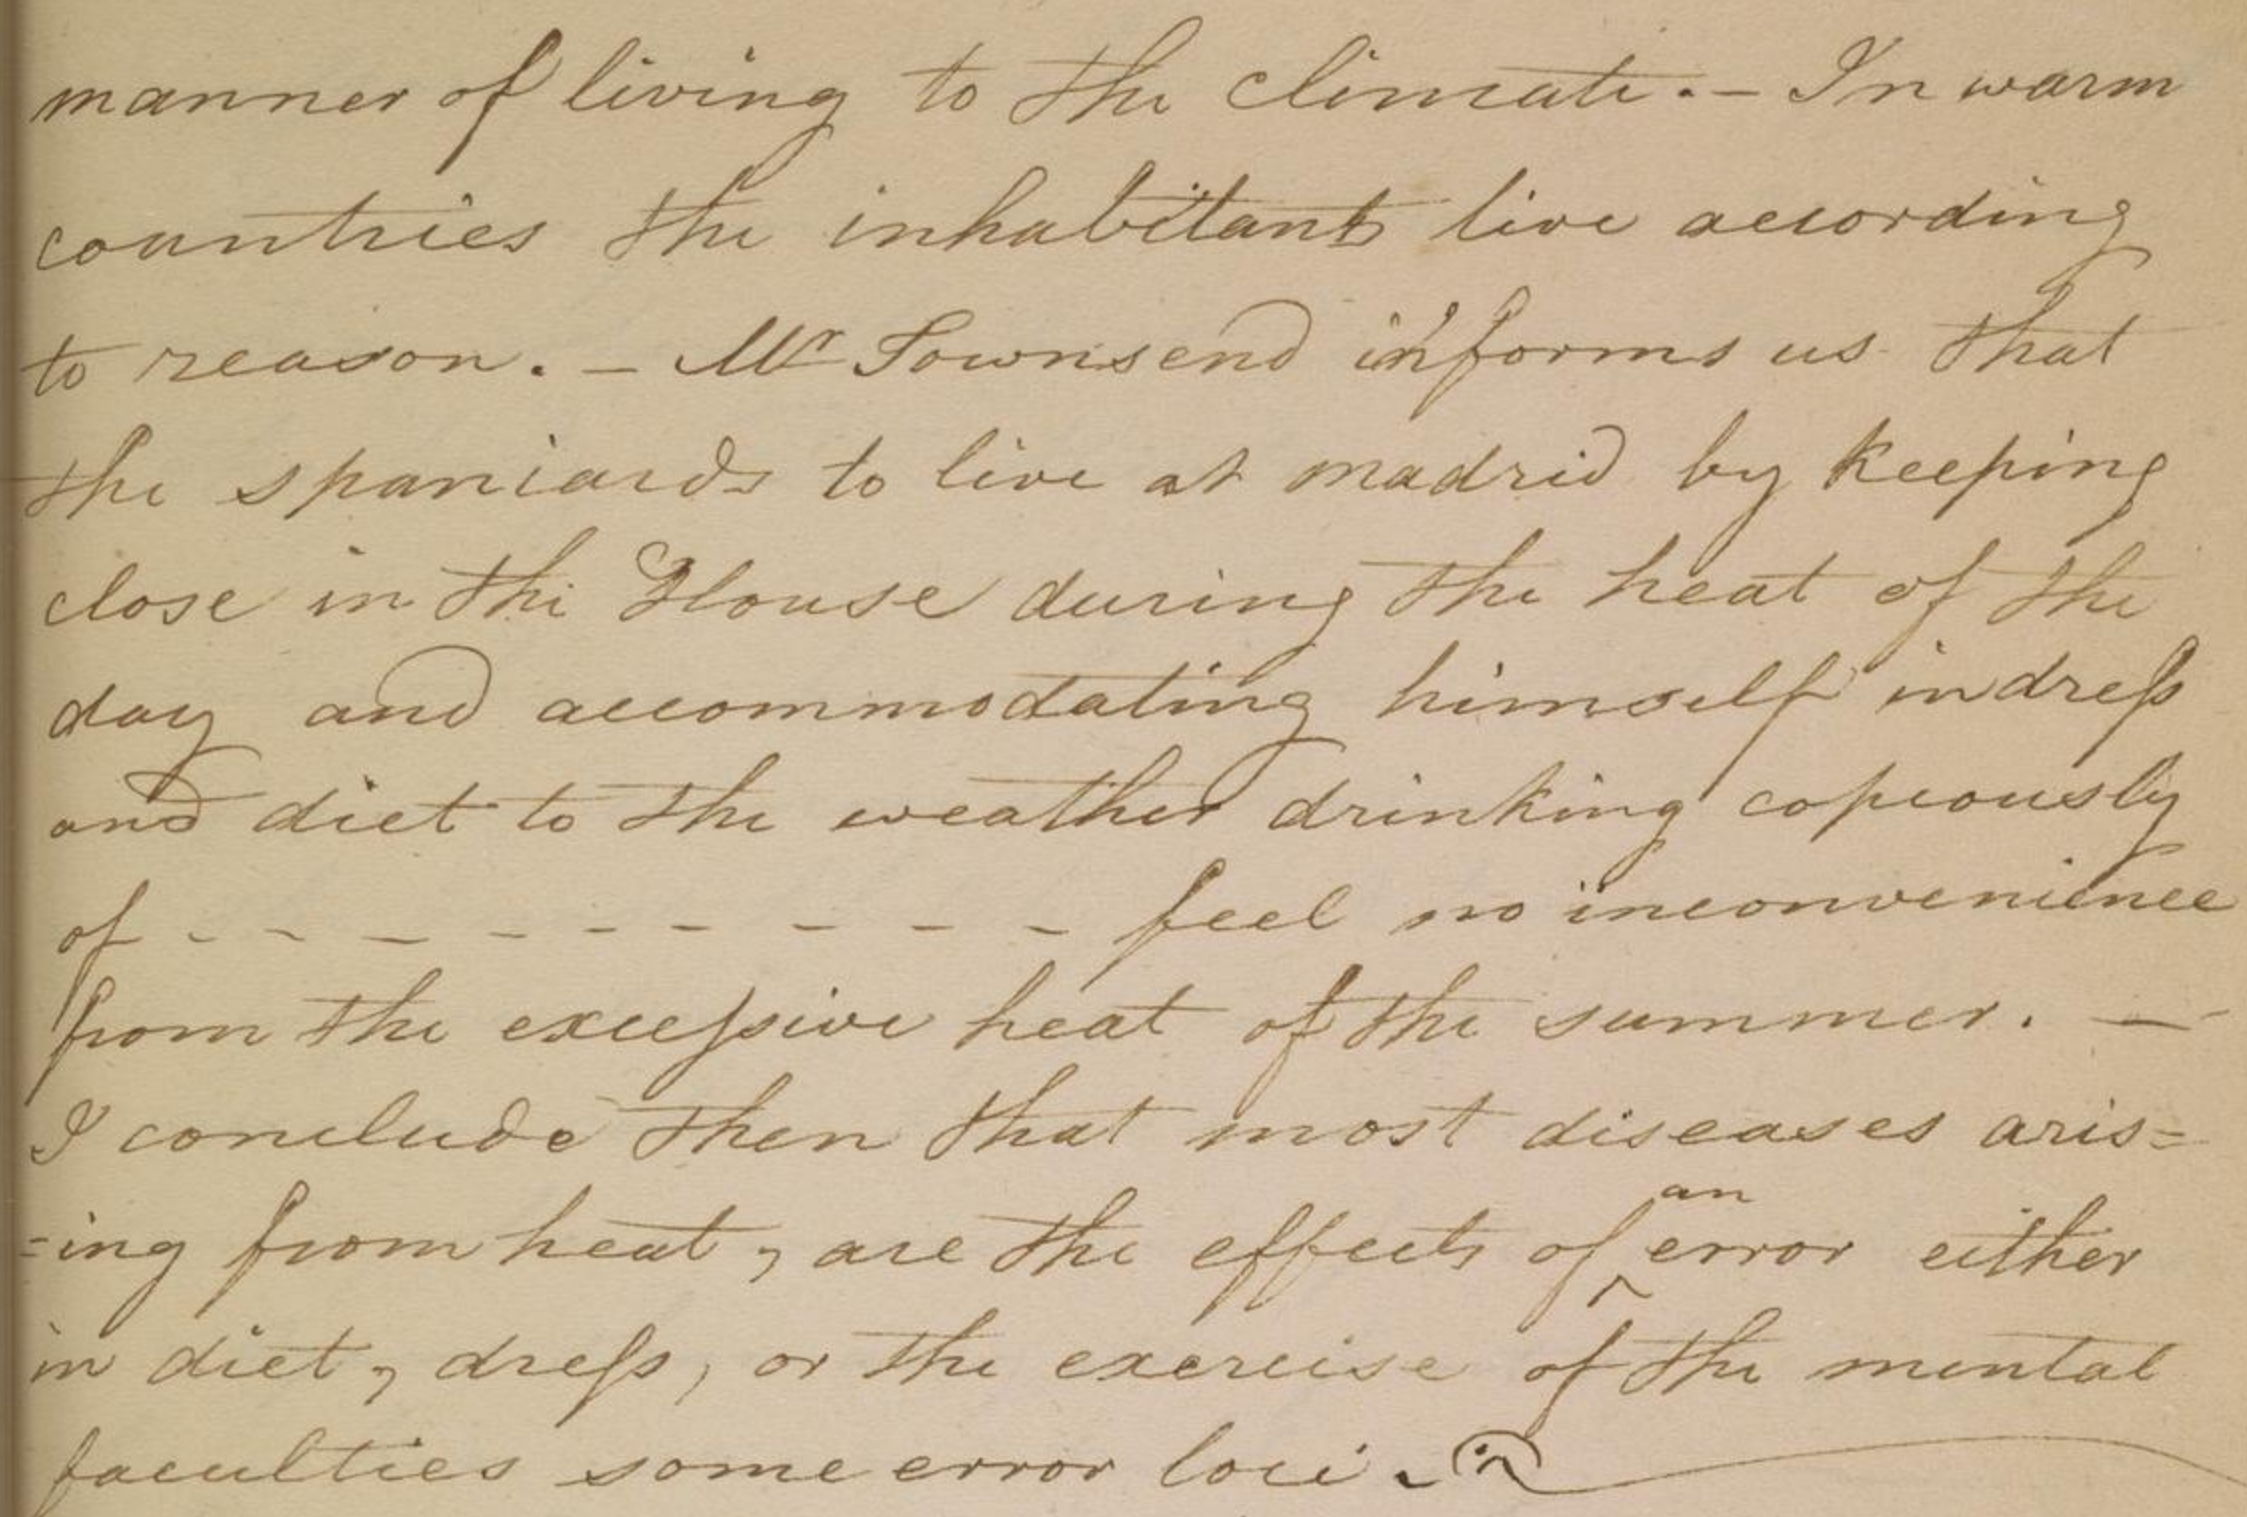 manner of living to the climate. - In warm
countries the inhabitants live according
to reason. - Mr Townsend informs us that
the spaniards to live at madrid by keeping
close in the House during the heat of the
day and accommodating himself in dress
and diet to the weather drinking copiously
of - - - - - - - - - feel no inconvenience
from the excessive heat of the summer. -
I conclude then that most diseases aris=
=ing from heat, are the effects of ^an error either
in diet, dress, or the exercise of the mental
faculties some error loci.